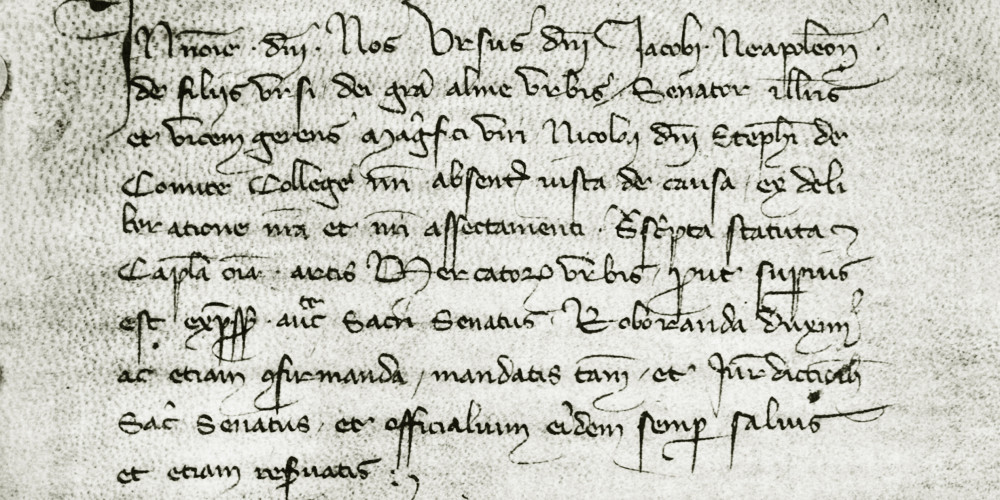 In noīe · dnī · Nos Ursus dnī Jacobi · Neapoleon̄ ·
de filijs Ursi dei gr̄a alme Urbis Senator illus̄
et vicem gerens Mag̃fici viri Nicolaj dnī Stephī de
Comite Collegẽ nr̄i absent̃ iusta de causa ex deli
beratione nr̄a et nr̄i assectamenti · S̃sc̃pta statuta ⁊
Capl̃a oīa · artis Mercatorꝝ Urbis ꝓut supius
est exp̄ss̄ · auc̄te Sacri Senatus Roboranda duxim⁹
ac etiam ꝯfirmanda mandatis tam̄ et Jur̄dictioīb
Sac̃ Senatus et officialium ei⁹dem semp̄ saluis
et etiam res̃uatis :